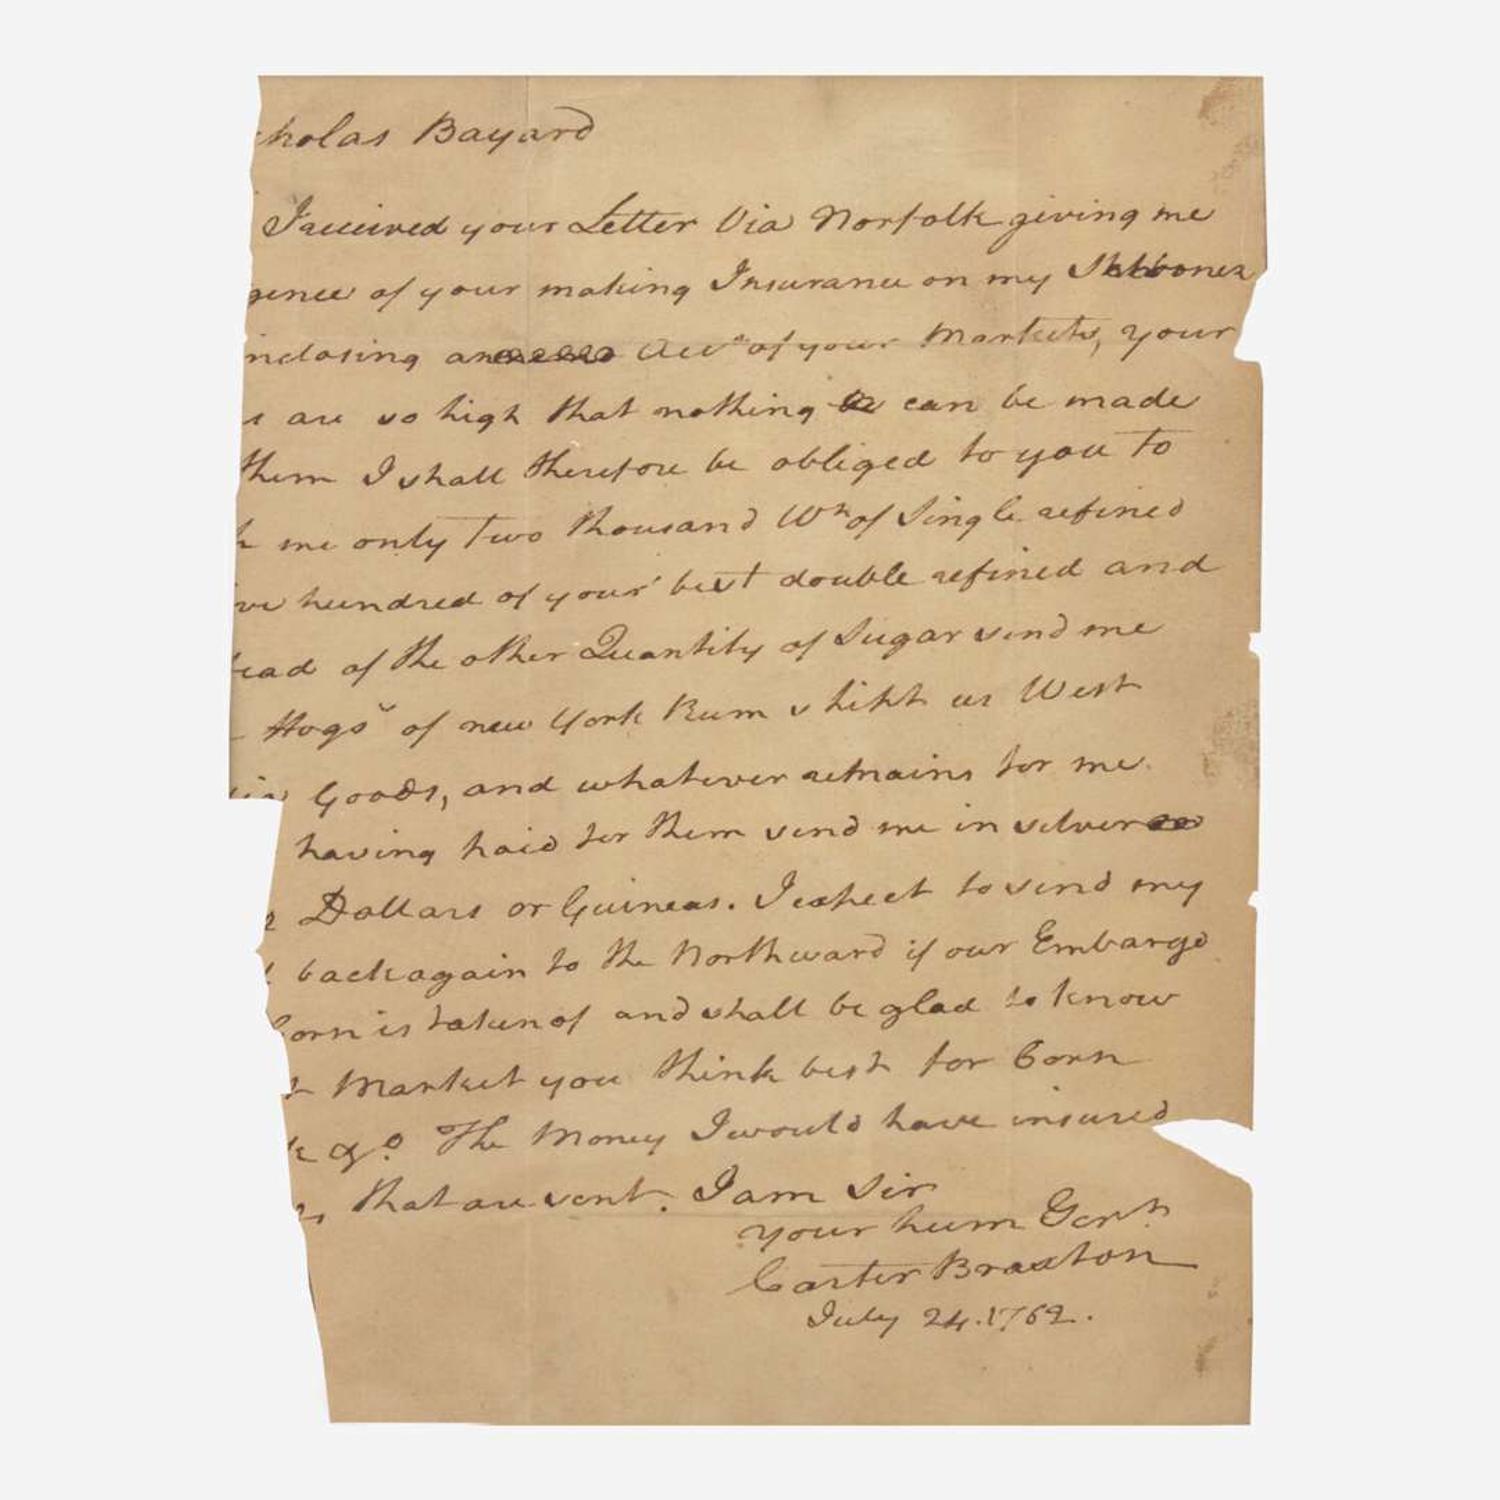 cholas Bayard
I received your Letter Via Norfolk giving me
gence of your making Insurance on my Schooner
nclosing an Accᵗ of your Markets, your
s are so high that nothing can be made
them I shall therefore be obliged to you to
me only Two thousand Wᵗ of Single refined
ive hundred of your best double refined and
tead of the other Quantity of Sugar send me
Hogsˢ of new York Rum shipt as West
Goods, and whatever remains for me
having paid for them send me in silver
Dollars or Guineas. I expect to send my
back again to the Northward if our Embargo
Corn is taken of and shall be glad to know
t Market you think best for Corn
&ᶜ. The Money I would have insured
that are sent. I am Sir
your hum Servᵗ
Carter Braxton
July 24. 1762.